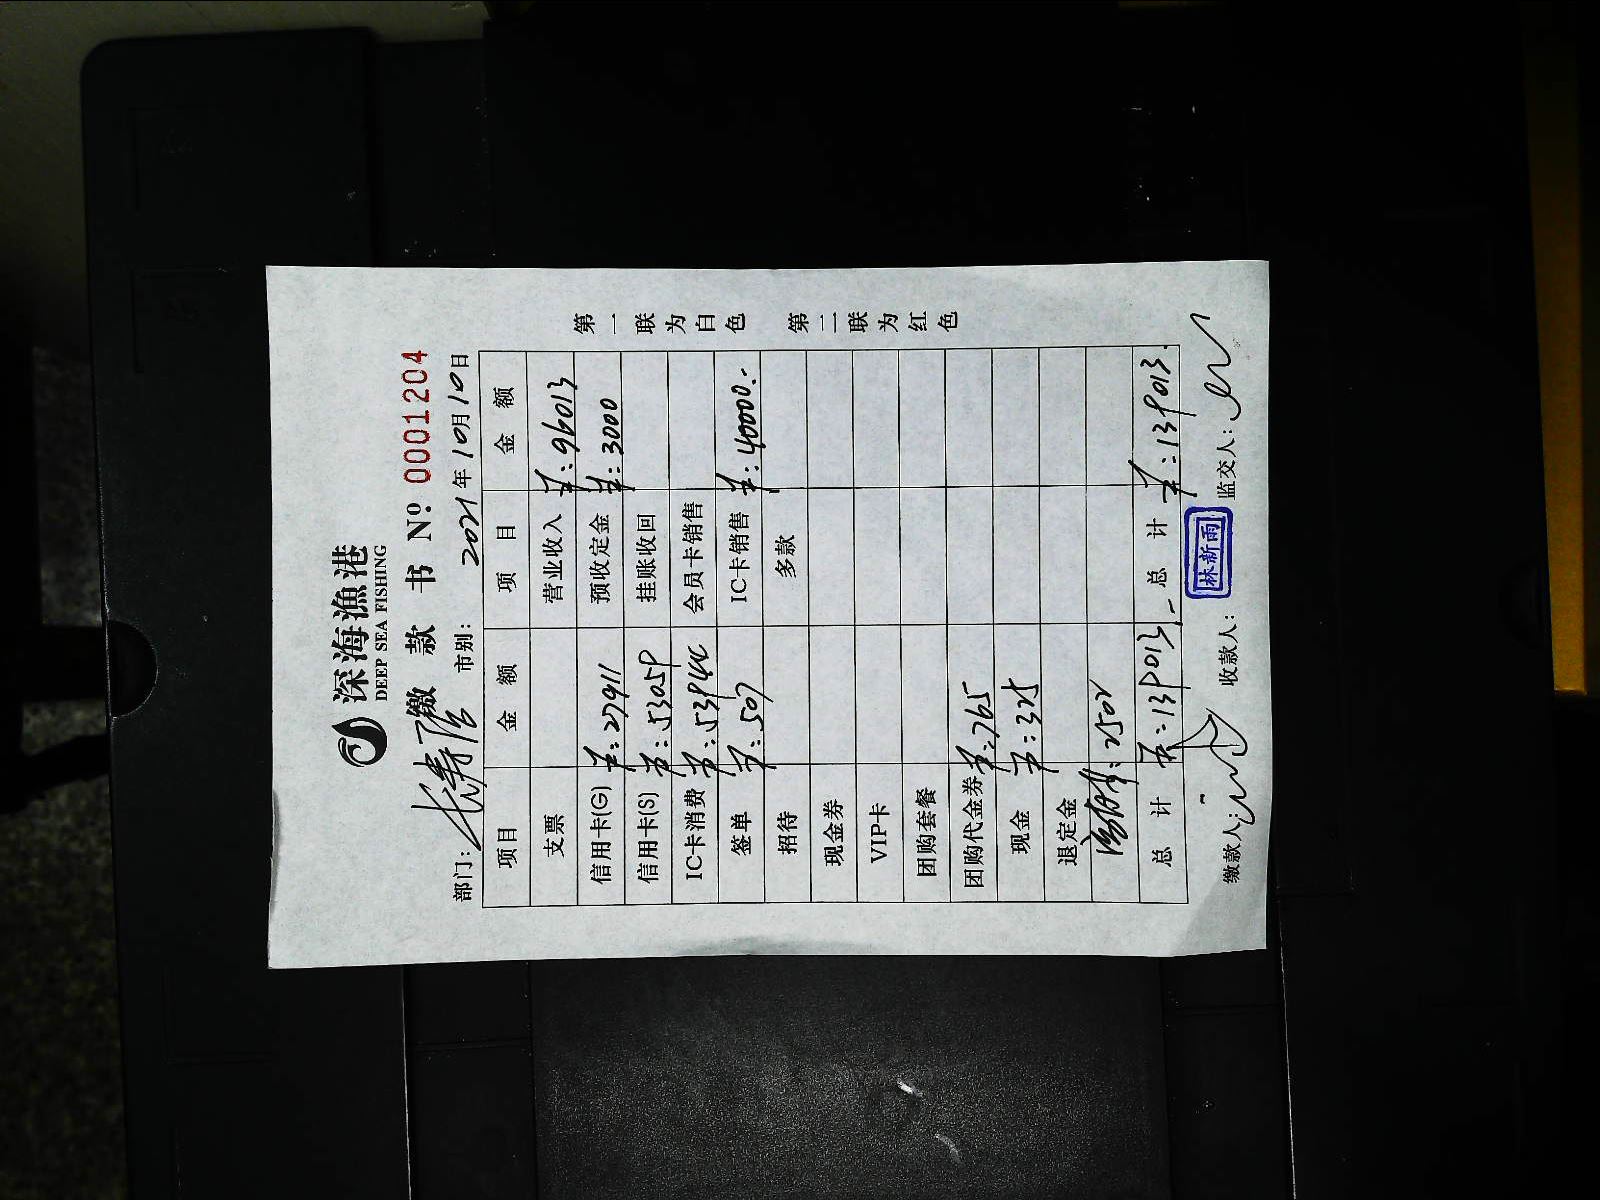 深海漁港
DEEP SEA FISHING
缴款书 Nº: 0001204
部门: 长寿店 市别: 2021年10月10日
项目 金额 项目 金额
支票 营业收入 ¥:96013
信用卡(G) ¥:27911 预收定金 ¥:3000
信用卡(S) ¥:53059 挂账收回
IC卡消费 ¥:53944 会员卡销售
签单 ¥:507 IC卡销售 ¥:40000.-
招待 多款
现金券
VIP卡
团购套餐
团购代金券 ¥:765
现金 ¥:325
退定金
:2502
总计 ¥:139013.- 总计 ¥:139013.
缴款人: 收款人: 林新雨 监交人:
第一联为白色 第二联为红色